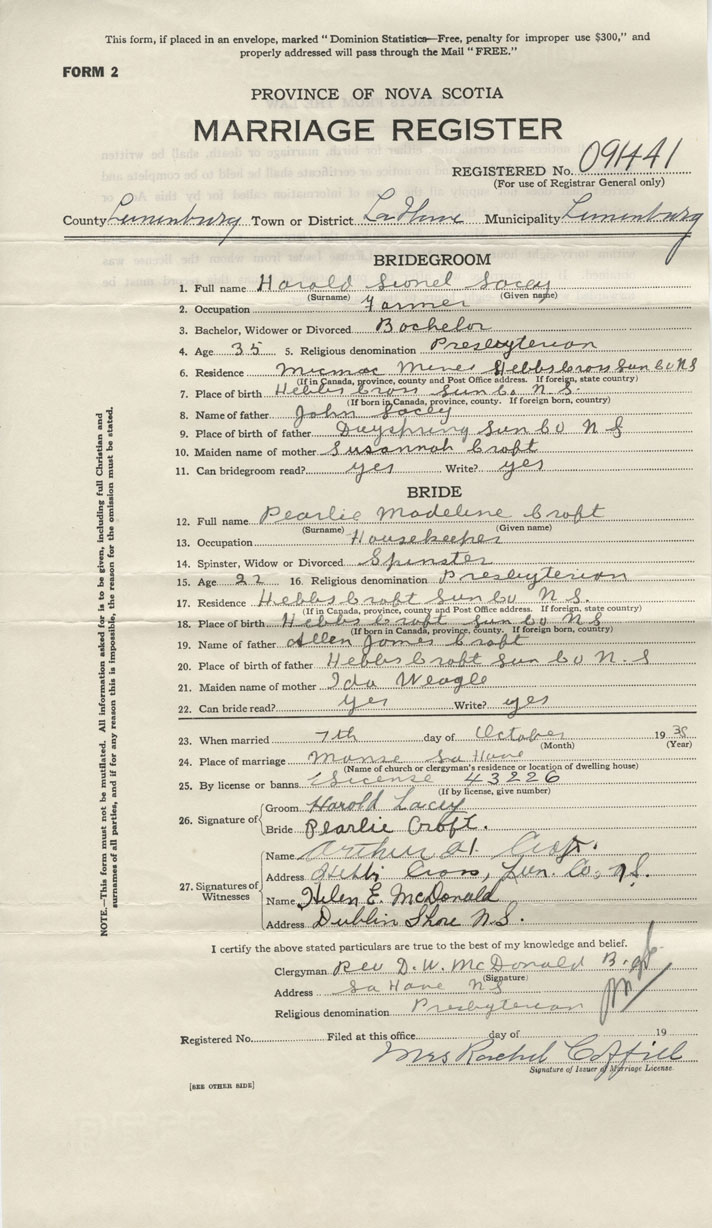 This form, if placed in an envelope, marked "Dominion Statistics—Free, penalty for improper use $300," and
properly addressed will pass through the Mail "FREE."
FORM 2
PROVINCE OF NOVA SCOTIA
MARRIAGE REGISTER
REGISTERED No. 091441
(For use of Registrar General only)
County Lunenburg Town or District LaHave Municipality Lunenburg
BRIDEGROOM
1. Full name Harold Lionel Lacey
(Surname) (Given name)
2. Occupation Farmer
3. Bachelor, Widower or Divorced Bachelor
4. Age 35 5. Religious denomination Presbyterian
6. Residence Micmac Mines Hebbs Cross Lun Co NS
(If in Canada, province, county and Post Office address. If foreign, state country)
7. Place of birth Hebbs Cross Lun Co. N.S.
(If born in Canada, province, county. If foreign born, country)
8. Name of father John Lacey
9. Place of birth of father Dayspring Lun Co N S
10. Maiden name of mother Susannah Croft
11. Can bridegroom read? yes Write? yes
BRIDE
12. Full name Pearlie Madeline Croft
(Surname) (Given name)
13. Occupation Housekeeper
14. Spinster, Widow or Divorced Spinster
15. Age 22 16. Religious denomination Presbyterian
17. Residence Hebbs Croft Lun Co N.S.
(If in Canada, province, county and Post Office address. If foreign, state country)
18. Place of birth Hebbs Croft Lun Co NS
(If born in Canada, province, county. If foreign born, country)
19. Name of father Allen James Croft
20. Place of birth of father Hebbs Croft Lun Co N.S
21. Maiden name of mother Ida Weagle
22. Can bride read? yes Write? yes
23. When married 7th day of October 1935
(Month) (Year)
24. Place of marriage Manse La Have
(Name of church or clergyman's residence or location of dwelling house)
25. By license or banns License 43226
(If by license, give number)
26. Signature of
Groom Harold Lacey
Bride Pearlie Croft.
27. Signatures of Witnesses
Name Arthur Croft.
Address Hebbs Cross, Lun. Co., N.S.
Name Helen E. McDonald
Address Dublin Shore N.S.
I certify the above stated particulars are true to the best of my knowledge and belief.
Clergyman Rev D. W. McDonald
(Signature)
Address La Have N.S
Religious denomination Presbyterian
Registered No. Filed at this office day of 19
Mrs Rachel
Signature of Issuer of Marriage License.
[SEE OTHER SIDE]
NOTE.—This form must not be mutilated. All information asked for is to be given, including full Christian and
surnames of all parties, and if for any reason this is impossible, the reason for the omission must be stated.